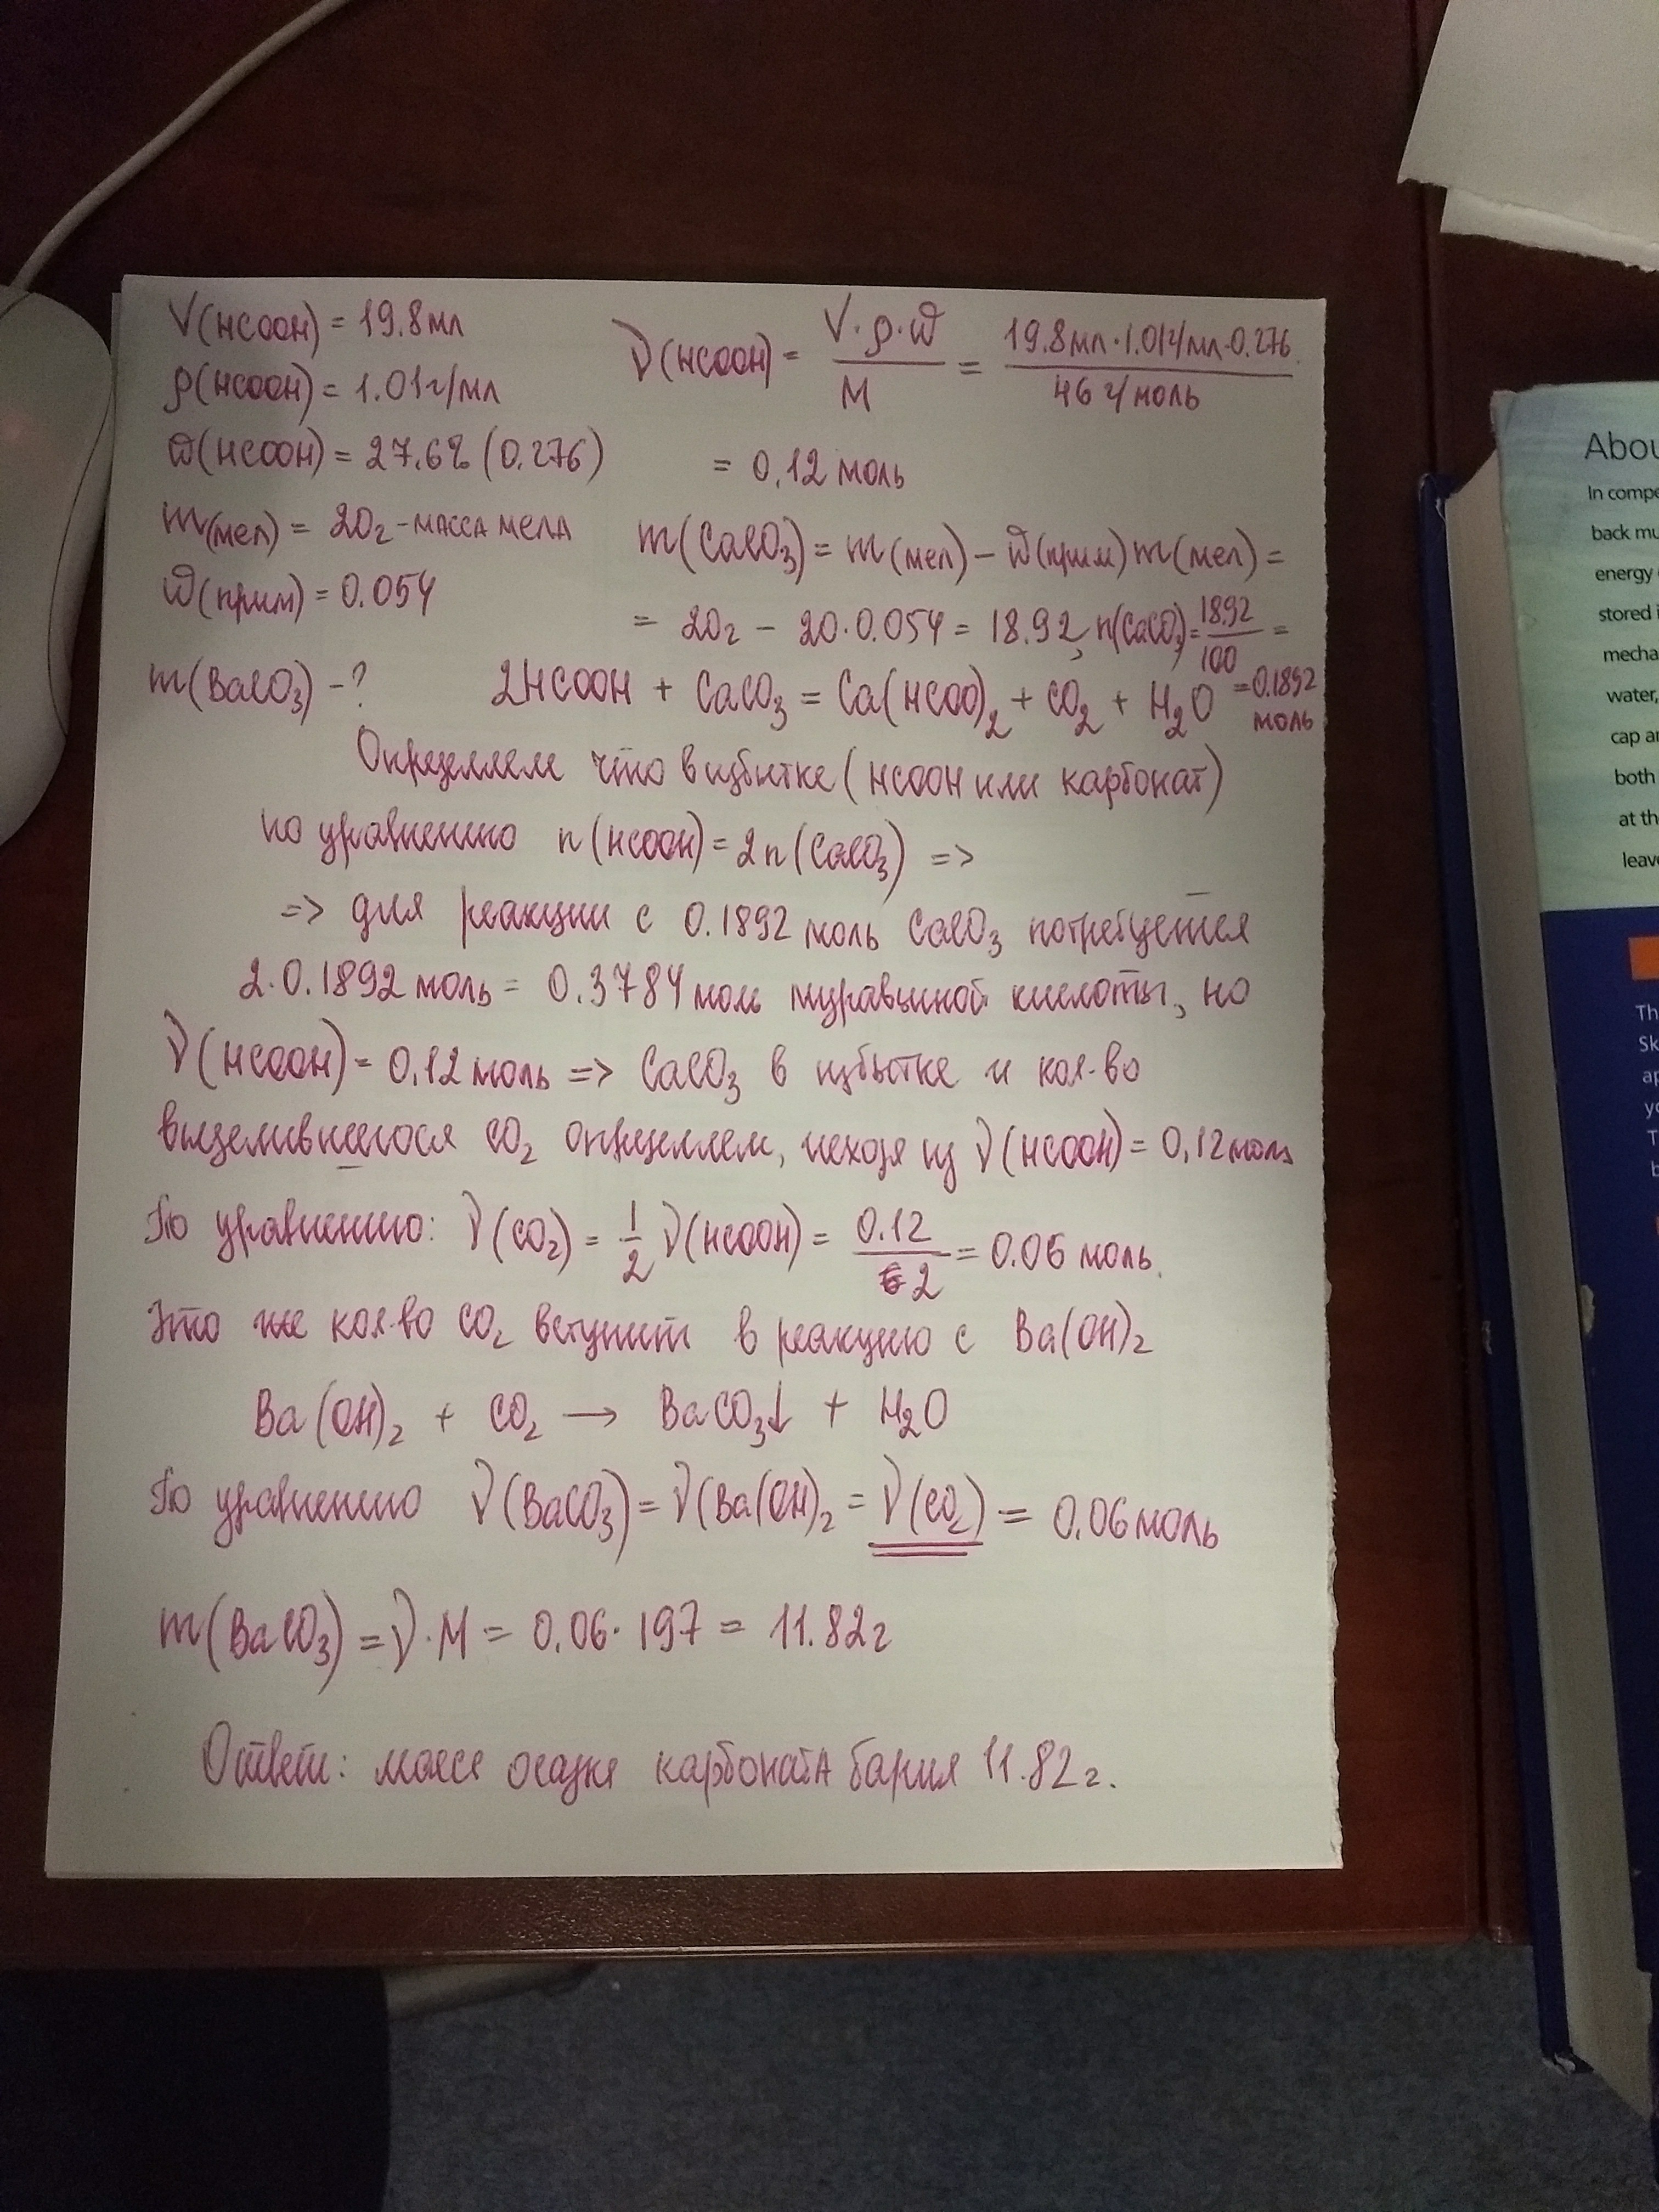 V(HCOOH) = 19.8 мл
ρ(HCOOH) = 1.01 г/мл
ω(HCOOH) = 27.6% (0.276)
m(мел) = 20г - масса мела
ω(прим) = 0.054
m(BaCO3) - ?
ν(HCOOH) = V·ρ·ω / M = 19.8мл·1.01г/мл·0.276 / 46 г/моль
= 0,12 моль
m(CaCO3) = m(мел) - ω(прим) m(мел) =
= 20г - 20·0.054 = 18.92, n(CaCO3) = 18.92 / 100 =
= 0.1892 моль
2HCOOH + CaCO3 = Ca(HCOO)2 + CO2 + H2O
Определяем что в избытке (HCOOH или карбонат)
по уравнению n(HCOOH) = 2n(CaCO3) =>
=> для реакции с 0.1892 моль CaCO3 потребуется
2·0.1892 моль = 0.3784 моль муравьиной кислоты, но
ν(HCOOH) = 0,12 моль => CaCO3 в избытке и кол-во
выделившегося CO2 определяем, исходя из ν(HCOOH) = 0,12 моль
По уравнению: ν(CO2) = 1/2 ν(HCOOH) = 0.12 / 2 = 0.06 моль.
Это же кол-во CO2 вступит в реакцию с Ba(OH)2
Ba(OH)2 + CO2 → BaCO3↓ + H2O
По уравнению ν(BaCO3) = ν(Ba(OH)2 = ν(CO2) = 0,06 моль
m(BaCO3) = ν·M = 0,06·197 = 11.82г
Ответ: масса осадка карбоната бария 11.82г.
Abou
In compe
back mu
energy
stored i
mecha
water,
cap a
both
at th
leav
Th
Sk
ap
yo
T
b